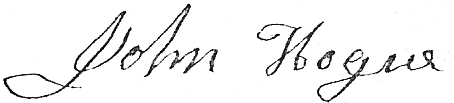 John Hogue